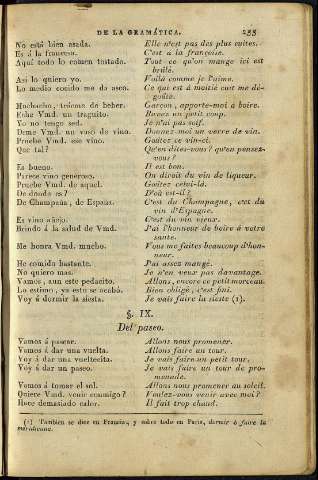 DE LA GRAMÁTICA. 255
No está bien asada. Elle n'est pas des plus cuites.
Es á la francesa. C'est à la françoise.
Aquí todo lo comen tostado. Tout ce qu'on mange ici est
brûlé.
Así lo quiero yo. Voilà comme je l'aime.
Lo medio cocido me da asco. Ce qui est à moitié cuit me dé-
goûte.
Muchacho, tráeme de beber. Garcon, apporte-moi a boire.
Eche Vmd. un traguito. Buvez un petit coup.
Yo no tengo sed. Je n'ai pas soif.
Deme Vmd. un vaso de vino. Donnez-moi un verre de vin.
Pruebe Vmd. ese vino. Goûtez ce vin-ci.
Que tal? Qu'en dites-vous? qu'en pensez-
vous?
Es bueno. Il est bon.
Parece vino generoso. On diroit du vin de liqueur.
Pruebe Vmd. de aquel. Goûtez celui-là.
De donde es? D'où est-il?
De Champaña, de España. C'est du Champagne, c'est du
vin d'Espagne.
Es vino añejo. C'est du vin vieux.
Brindo á la salud de Vmd. J'ai l'honneur de boire à votre
santé.
Me honra Vmd. mucho. Vous me faites beaucoup d'hon-
neur.
He comido bastante. J'ai assez mangé.
No quiero mas. Je n'en veux pas davantage.
Vamos, aun este pedacito. Allons, encore ce petit morceau.
Lo estimo, ya esto se acabó. Bien obligé, c'est fini.
Voy á dormir la siesta. Je vais faire la sieste (1).
§. IX.
Del paseo.
Vamos á pasear. Allons nous promener.
Vamos á dar una vuelta. Allons faire un tour.
Voy á dar una vueltecita. Je vais faire un petit tour.
Voy á dar un paseo. Je vais faire un tour de pro-
menade.
Vamos á tomar el sol. Allons nous promener au soleil.
Quiere Vmd. venir conmigo? Voulez-vous venir avec moi?
Hace demasiado calor. Il fait trop chaud.
(1) Tambien se dice en Francia, y sobre todo en Paris, dormir ó faire la
méridienne.